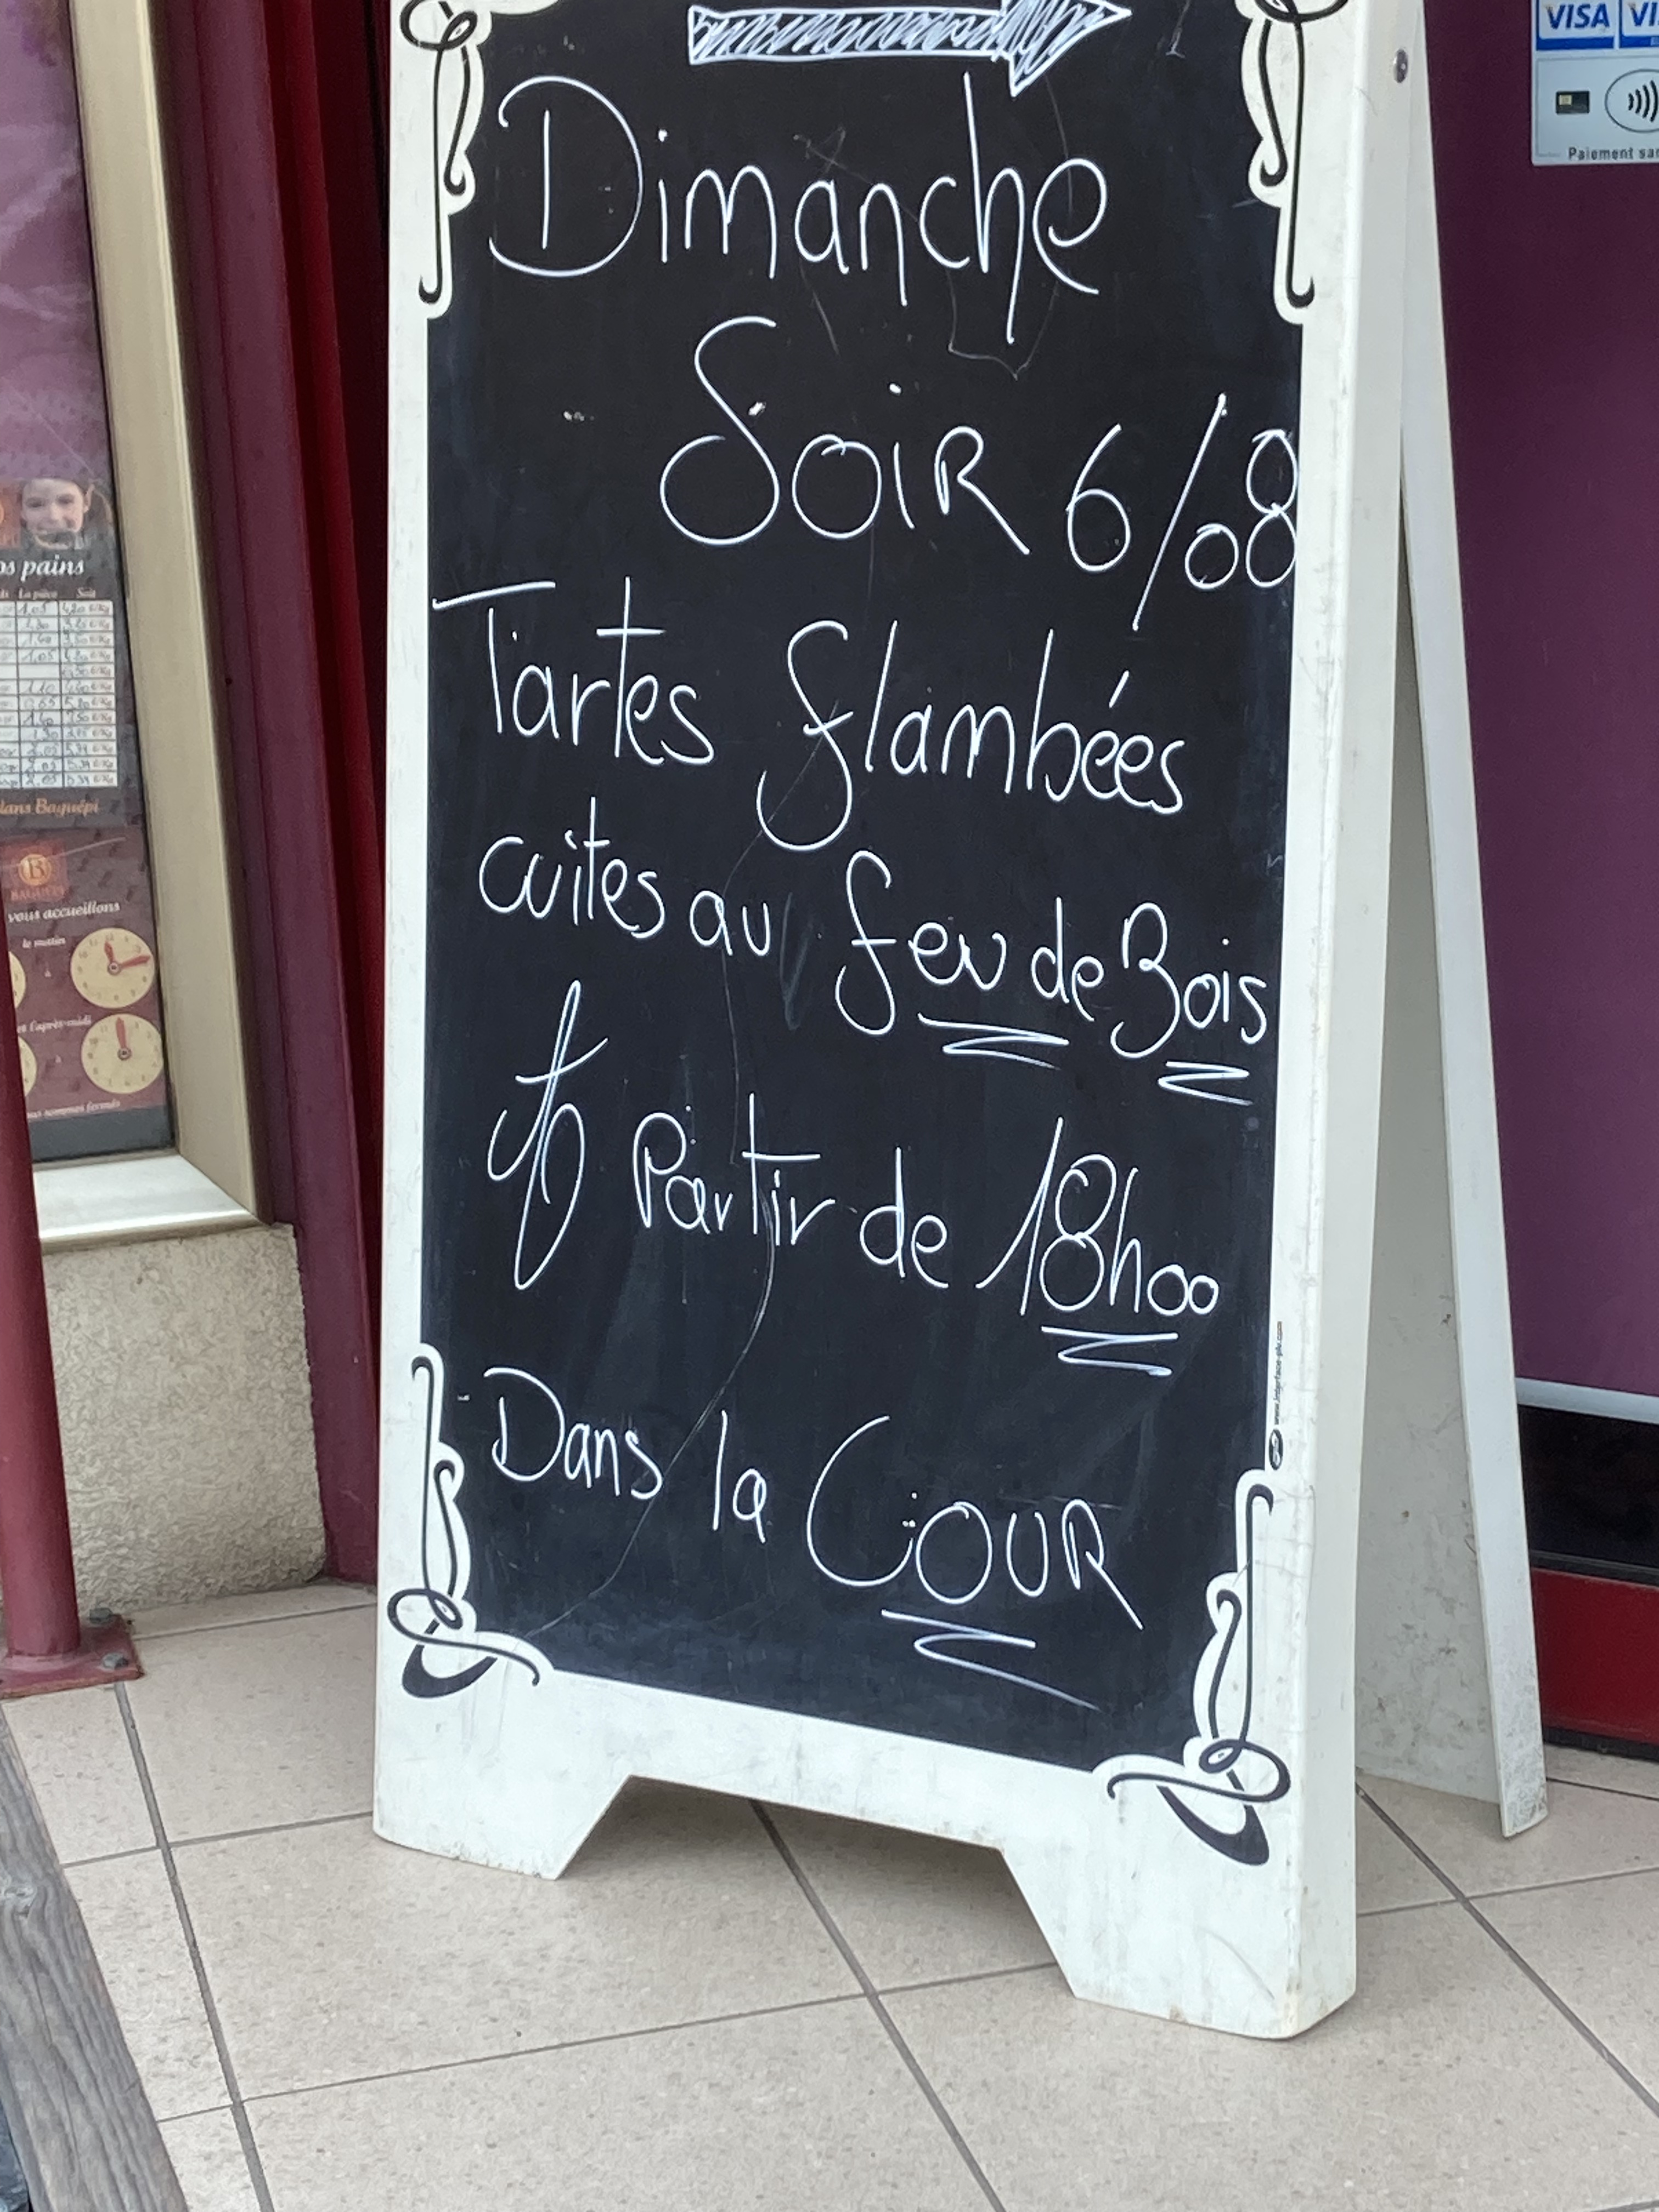 VISA
Paiement
Dimanche
SOIR 6/08
Tartes flambées
cuites au feu de Bois
à Partir de 18h00
Dans la COUR
os pains
La pièce
dans Baguépi
BAGUÉPI
vous accueillons
le matin
et l'après-midi
nous sommes fermés
www.interface-plv.com